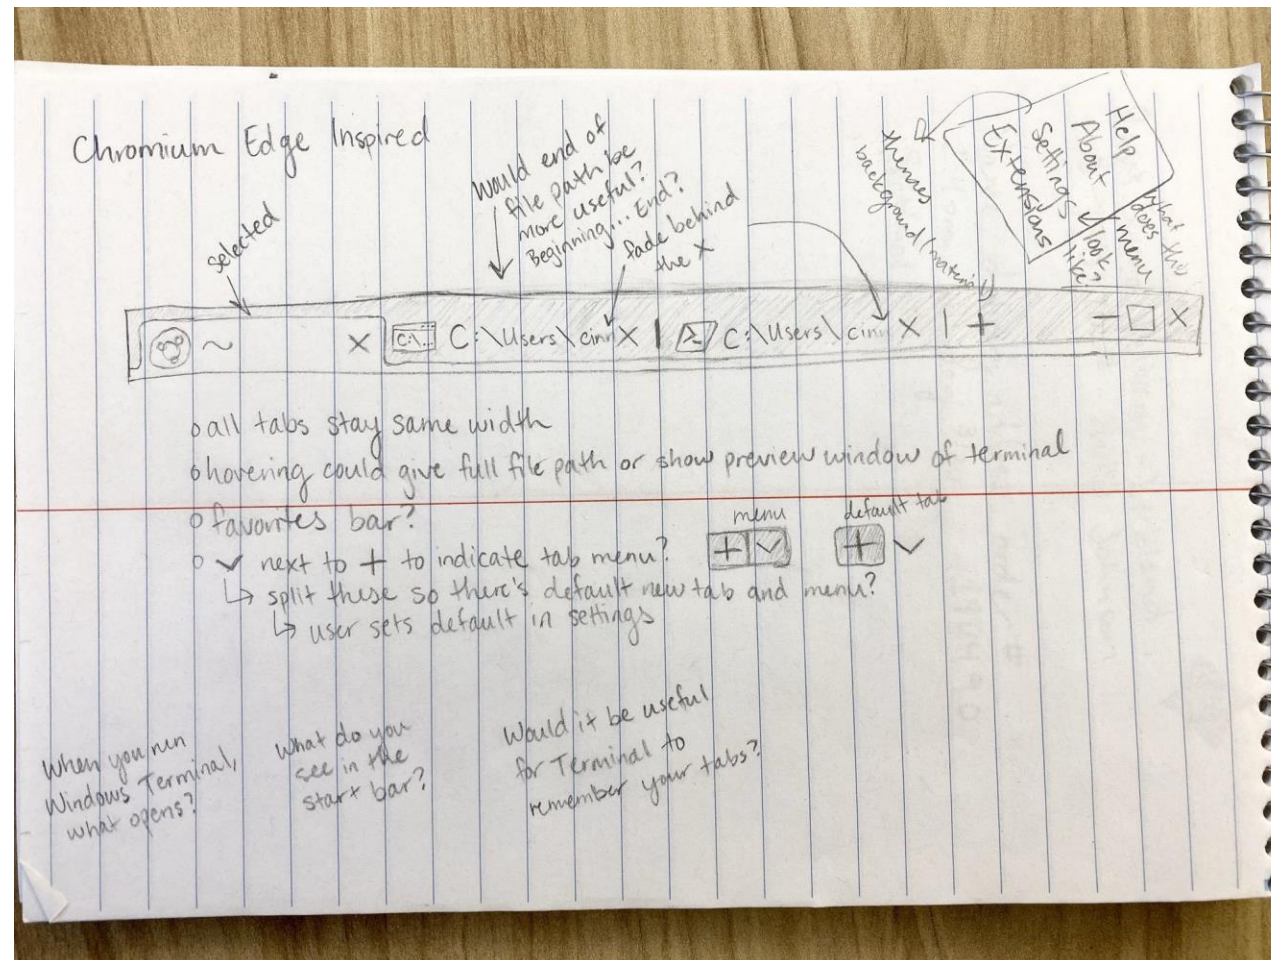 Chromium Edge Inspired
selected
Would end of
file path be
more useful?
Beginning... End?
fade behind
the X
themes
background (material)
Help
About
Settings
Extensions
what
does the
menu
look
like?
~ X
C:\.. C:\Users\cinn X | >_ C:\Users\cin X | + - □ X
o all tabs stay same width
o hovering could give full file path or show preview window of terminal
o favorites bar?
o ✓ next to + to indicate tab menu?
menu
+ ✓
default tab
+ ✓
↳ split these so there's default new tab and menu?
↳ user sets default in settings
When you run
Windows Terminal,
what opens?
What do you
see in the
start bar?
Would it be useful
for Terminal to
remember your tabs?